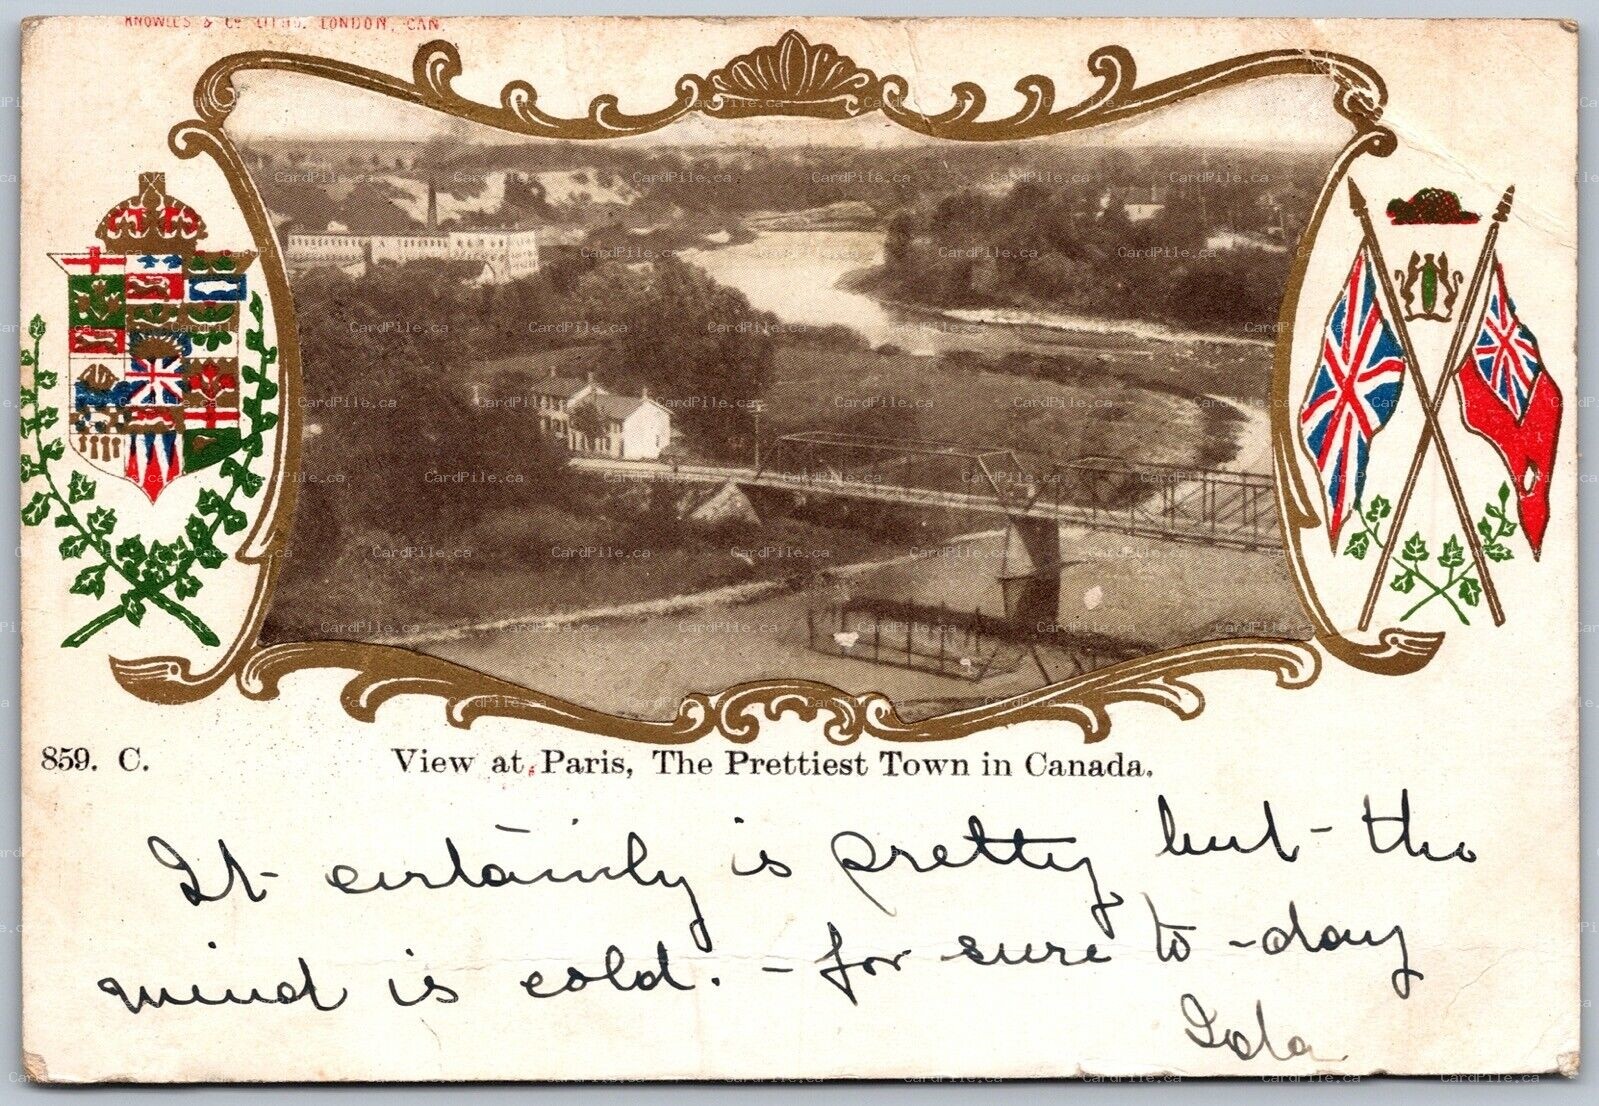 KNOWLES & Co LITHO. LONDON, CAN.
859. C.
View at Paris, The Prettiest Town in Canada.
It certainly is pretty but - the
wind is cold. - for sure to-day
Ida
CardPile.ca